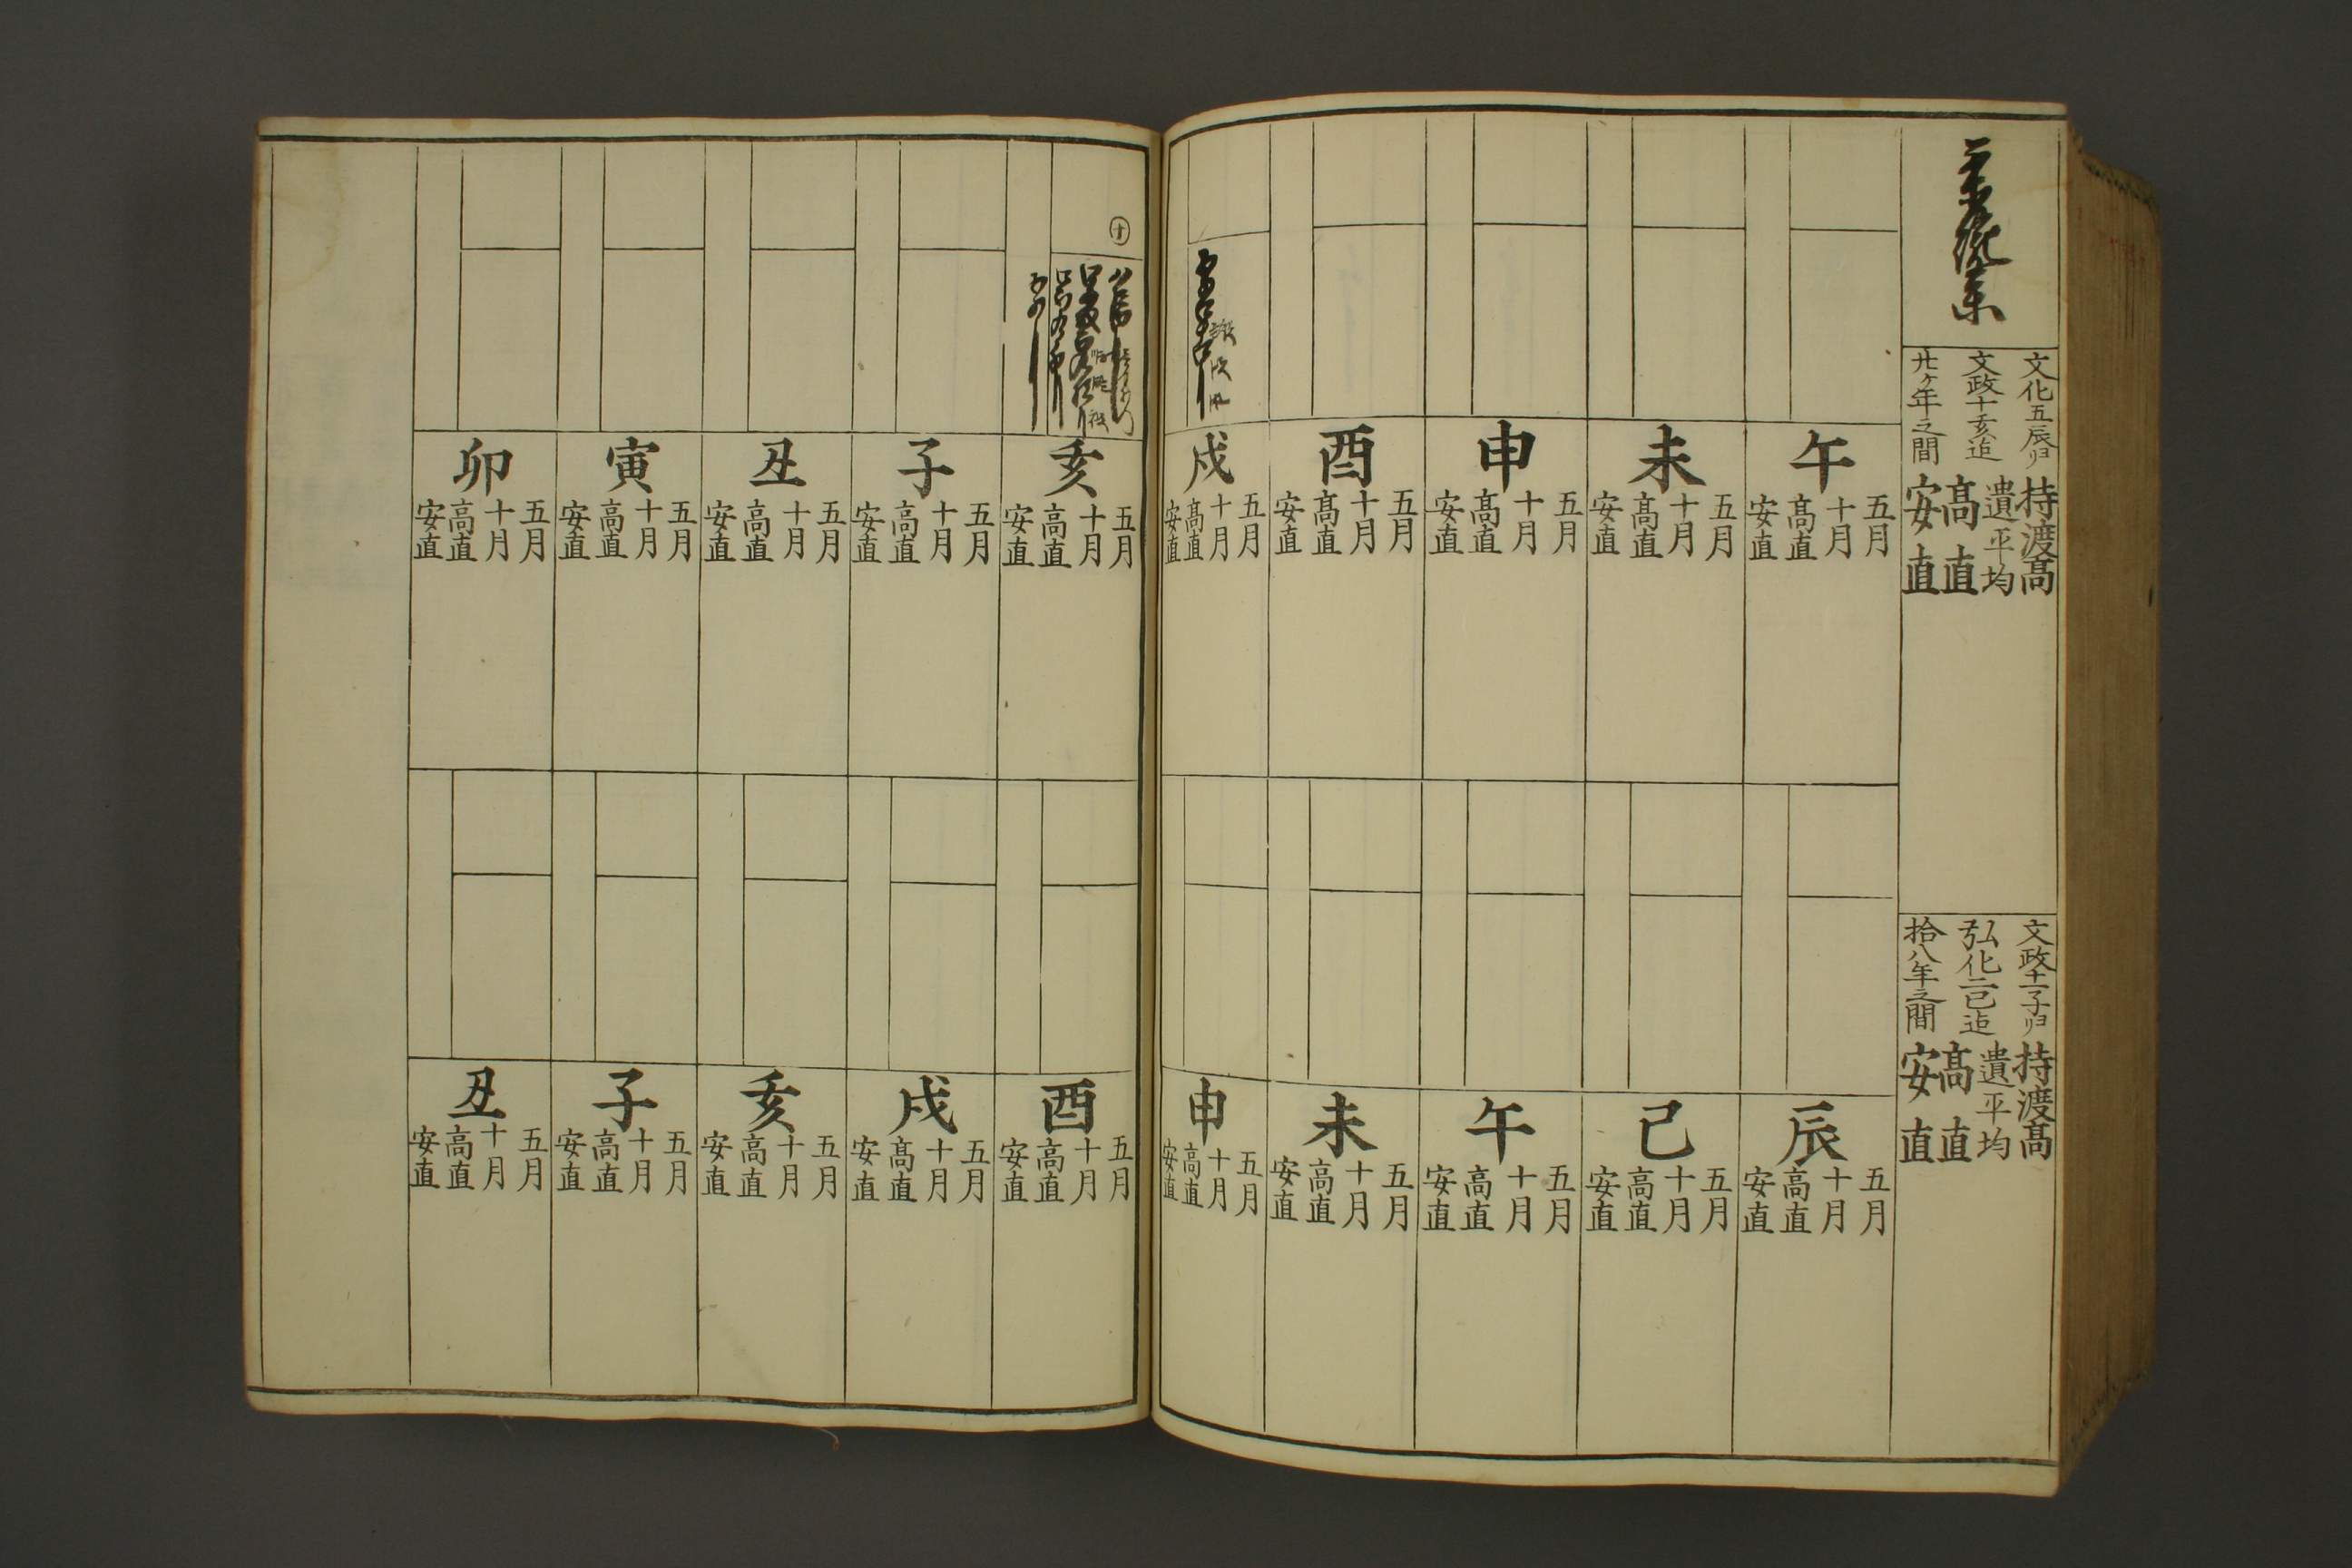 文化五辰ゟ
文政十亥迠
廿ヶ年之間
持渡髙
遺平均
髙直
安直
午
五月
十月
髙直
安直
未
五月
十月
髙直
安直
申
五月
十月
髙直
安直
酉
五月
十月
髙直
安直
戌
五月
十月
髙直
安直
文政十一子ゟ
弘化二巳迠
拾八年之間
持渡髙
遺平均
髙直
安直
辰
五月
十月
髙直
安直
巳
五月
十月
髙直
安直
午
五月
十月
髙直
安直
未
五月
十月
髙直
安直
申
五月
十月
髙直
安直
十
亥
五月
十月
髙直
安直
子
五月
十月
髙直
安直
丑
五月
十月
髙直
安直
寅
五月
十月
髙直
安直
卯
五月
十月
髙直
安直
酉
五月
十月
髙直
安直
戌
五月
十月
髙直
安直
亥
五月
十月
髙直
安直
子
五月
十月
髙直
安直
丑
五月
十月
髙直
安直